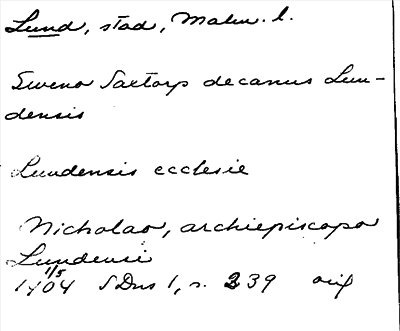 Lund, stad, Malm. l.
Sweno Saxtorp decanus Lun-
densis
Lundensis ecclesie
Nicholao, archiepiscopo
Lundensi
1/5
1404 SDns 1, s. 239 orig